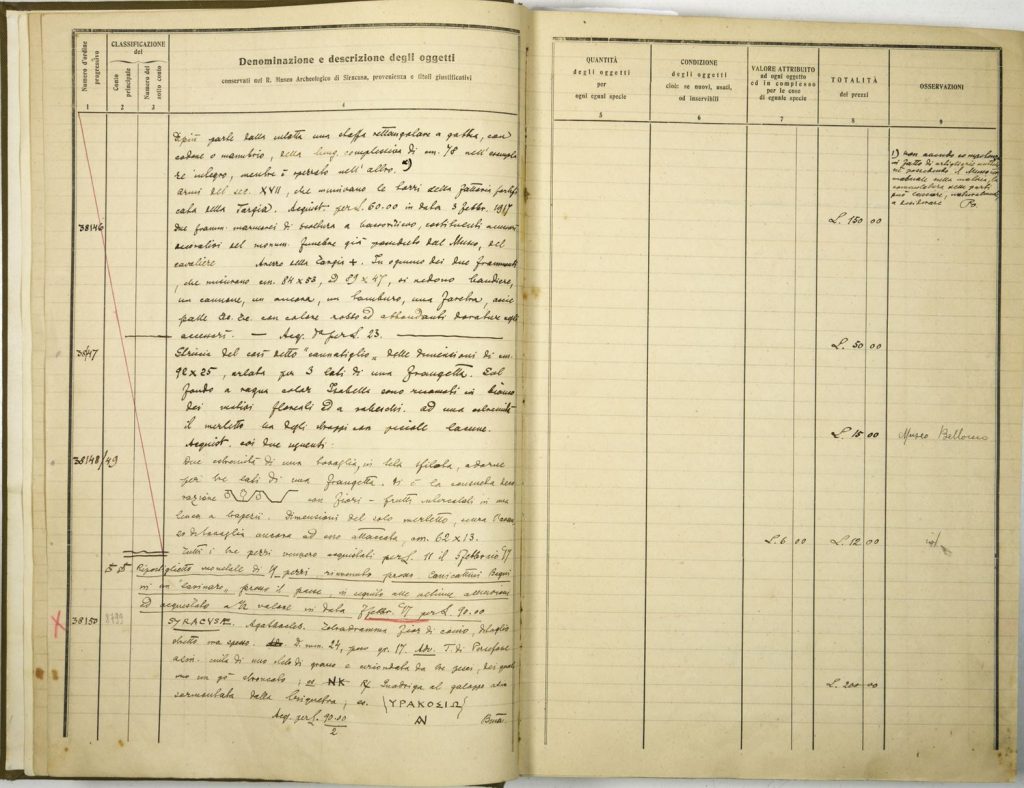 Numero d'ordine progressivo
CLASSIFICAZIONE del
Conto principale
Numero del sotto conto
Denominazione e descrizione degli oggetti
conservati nel R. Museo Archeologico di Siracusa, provenienza e titoli giustificativi
1 2 3 4
parte dalla una staffa rettangolare a gabbia, con
codone o manubrio, della lung. complessiva di cm. 78 nell'esempla
re integro, mentre è nell'altro. 1)
armi del sec. XVII, che munivano le torri della fattoria fortifi
cata della Targia. Acquist. per L. 60.00 in data 3 Febbr. 1917
38146
Due framm. marmorei di scultura a bassorilievo, costituenti accessori
decorativi del monum. funebre già posseduto dal Museo, del
cavaliere Arezzo della Targia +. In ognuno dei due frammenti
, che misurano cm. 84 x 53, e 59 x 47, si vedono bandiere,
un cannone, un ancora, un tamburo, una faretra,
palle ec. ec. con colore rosso ed abbondanti dorature negli
accessori. — Acq. per L. 23.
38147
Striscia del così detto "cannatiglio" delle dimensioni di cm.
92 x 25, orlata per 3 lati di una frangetta. Sul
fondo a color Isabella sono ricamati in bianco
dei motivi floreali ed a rabeschi. ad una estremità
il merletto ha degli strappi con piccole lacune.
Acquist. coi due seguenti.
38148/49
Due estremità di una tovaglia, in tela sfilata, adorne
per tre lati di una frangetta. Vi è la consueta deco
razione con fiori - frutti intercalati in una
linea a trapezii. Dimensioni del solo merletto, senza l'avan
zo di tovaglia ancora ad esso attaccata, cm. 62 x 13.
Tutti i tre pezzi vennero acquistati per L. 11 il 5 Febbraio 917
Ripostiglietto monetale di 4 pezzi rinvenuto presso Canicattini Bagni
in un "casinaro" presso il paese, in seguito alle ultime
ed acquistato a 1/2 valore in data 7 febbr. 917 per L. 90.00
X 38150 8799
SYRACUSE. Agathocles. Tetradramma fior di conio, di taglio
stretto ma spesso. D. mm. 24, peso gr. 17. Adv. T. di Persefone
cinta di uno stelo di grano e circondata da tre pesci, dei quali
uno un pò stroncato; es NK R/ Quadriga al galoppo a sin
sormontata dalla triquetra; es. (ΥΡΑΚΟΣΙΩ)
Acq. per L. 90.00 / 2 AN Bma.
QUANTITÀ degli oggetti per ogni egual specie
CONDIZIONE degli oggetti cioè: se nuovi, usati, od inservibili
VALORE ATTRIBUITO ad ogni oggetto ed in complesso per le cose di eguale specie
TOTALITÀ dei prezzi
OSSERVAZIONI
5 6 7 8 9
1) non avendo io
in fatto di artiglierie antiche
nè possedendo il Museo
manuale nella materia, la
nomenclatura delle parti
può lasciare, naturalmente
a desiderare
L. 150 00
L. 50 00
L. 15 00 Museo Bellomo
L. 6 00 L. 12 00
L. 200 00